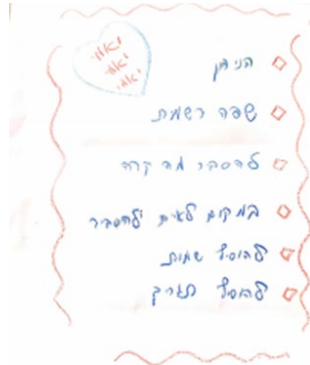 יאמי
יאמי
יאמי
הנידון
שפה רשמית
להסביר מה קרה
במקום לאיים להסביר
להוסיף שמות
להוסיף תאריך